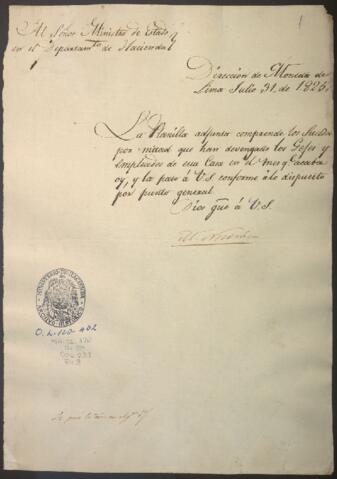 1
Al Señor Ministro de Estado
en el Departamto de Hacienda
Direccion de Moneda de
Lima Julio 31. de 1826.
La Planilla adjunta comprende los Sueldos
por mitad que han devengado los Gefes y
Empleados de esta Casa en el mes q. acaba
oy, y la paso á V.S. conforme á lo dispuesto
por punto general.
Dios gue á V.S.
MINISTERIO DE HACIENDA
ARCHIVO HISTORICO
O.L. 150-402